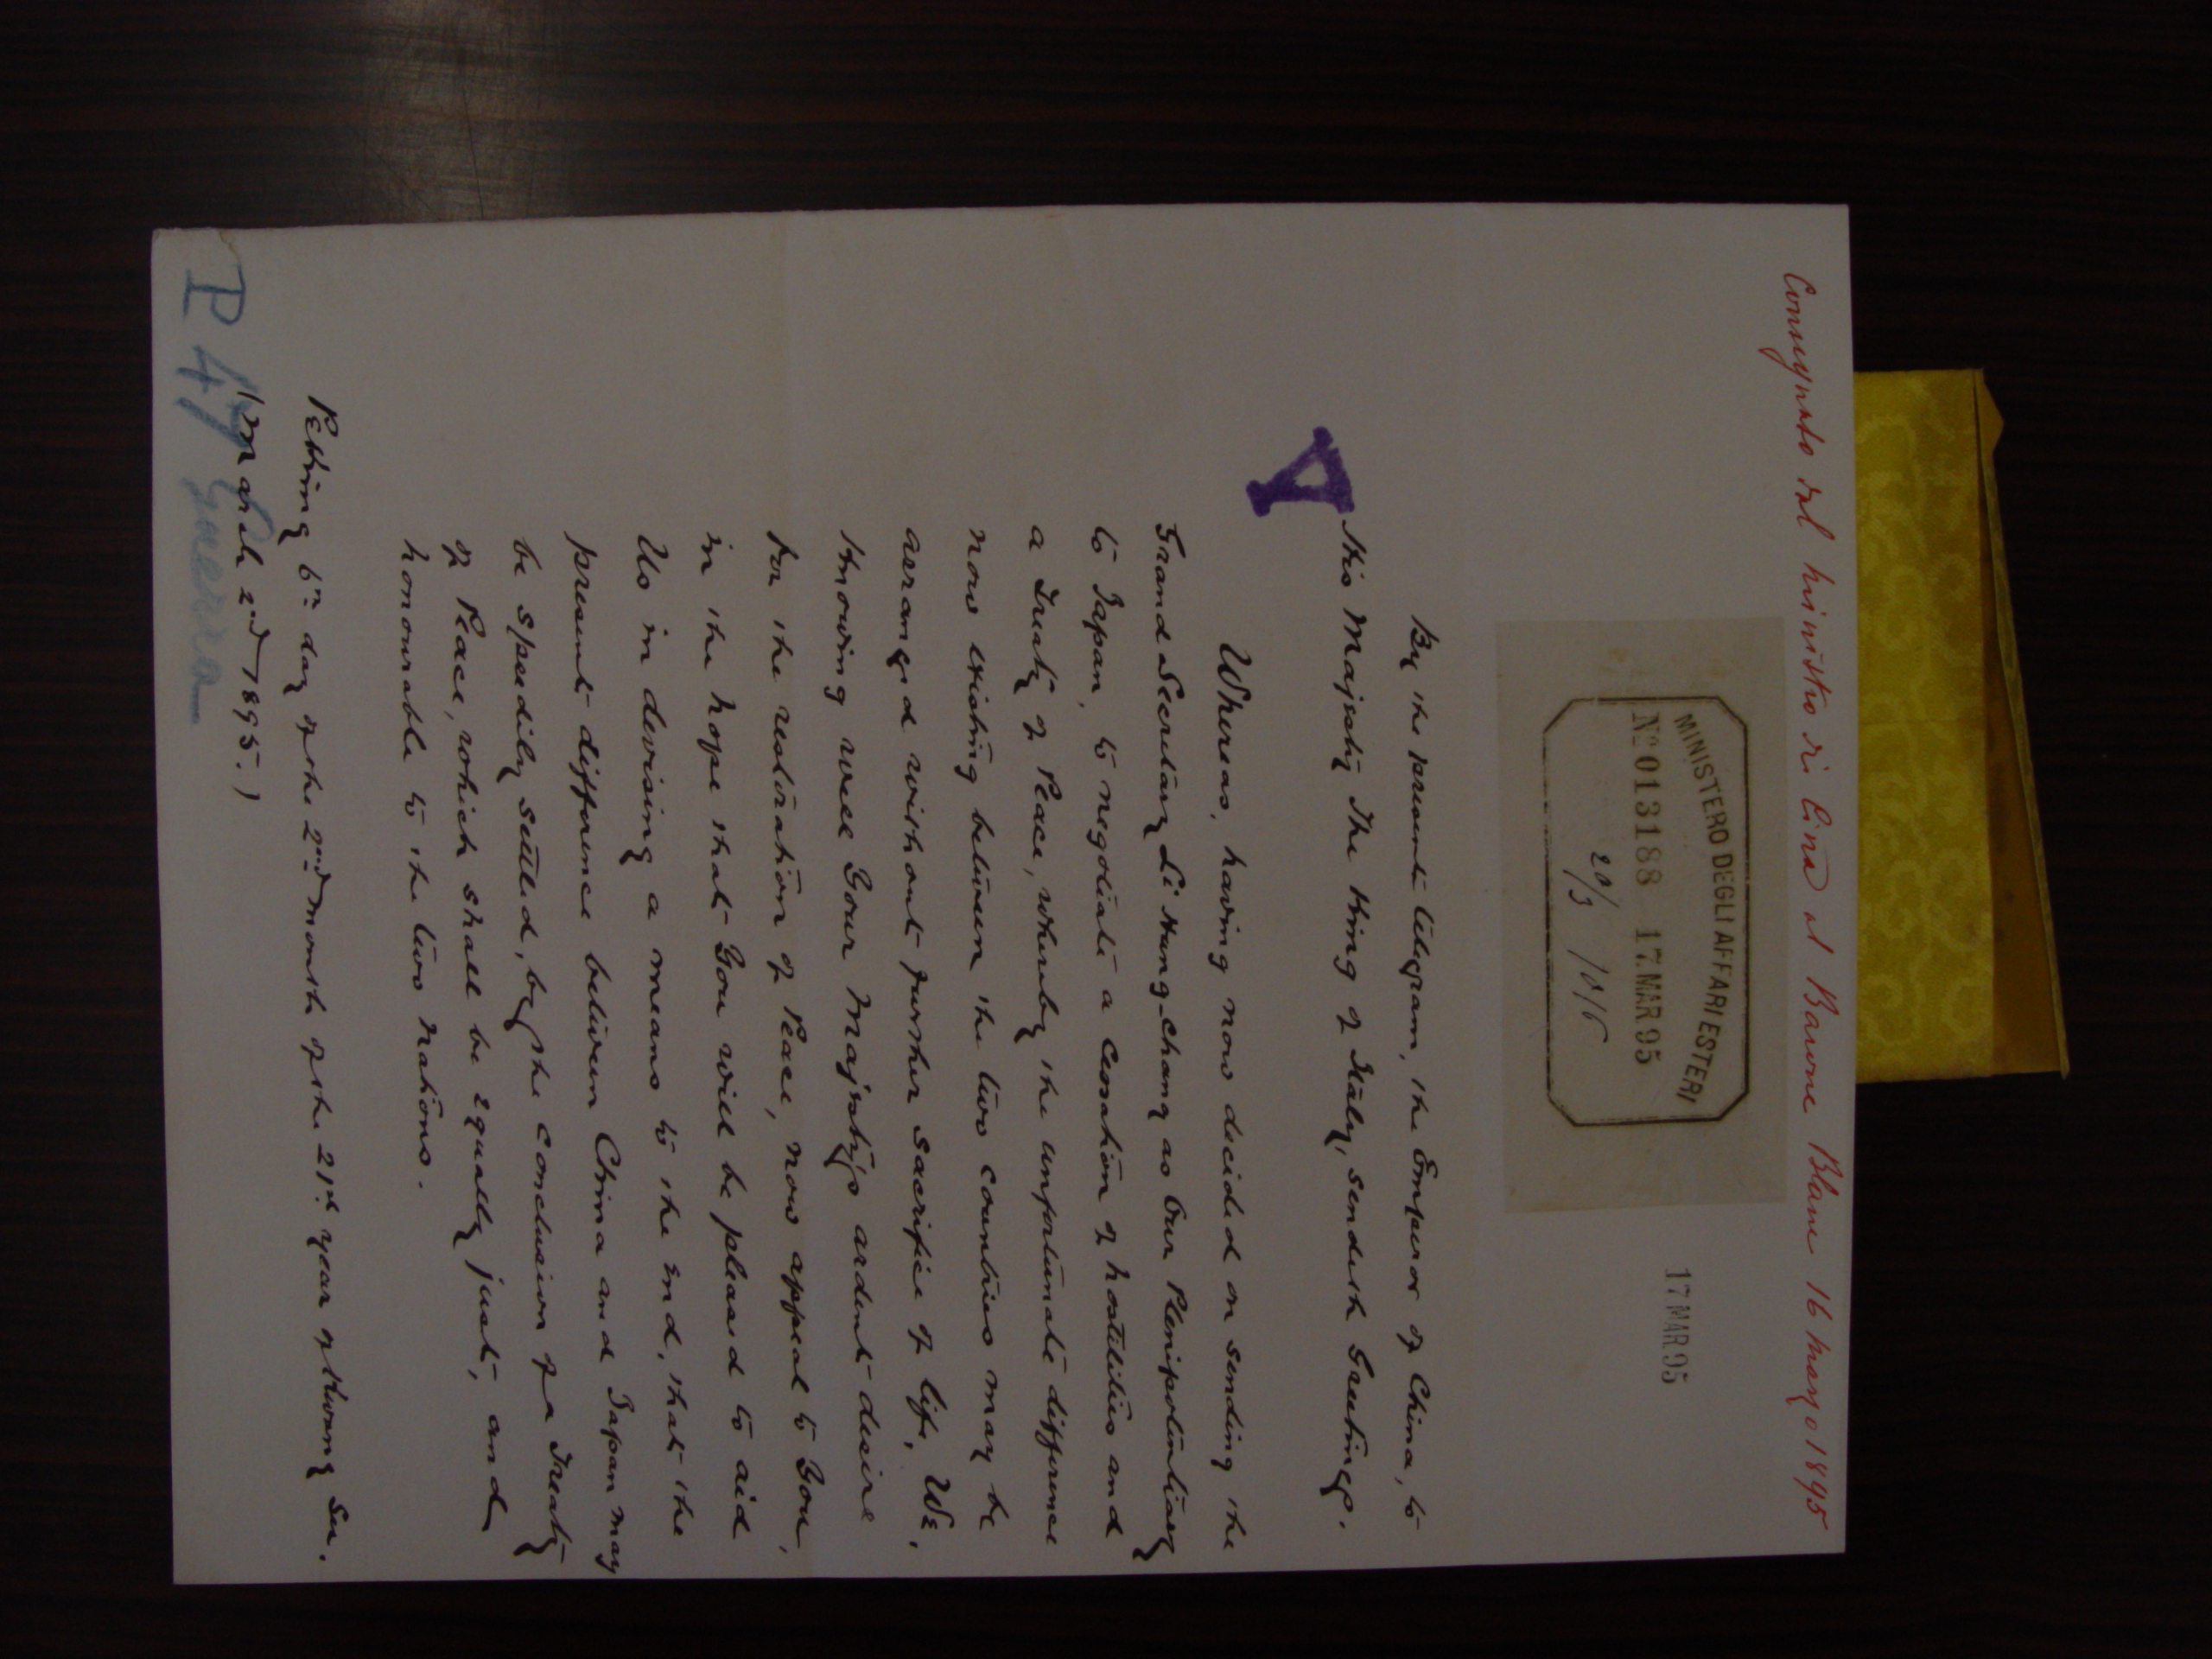 Consegnato dal ministro di Cina al Barone Blanc 16 marzo 1895
MINISTERO DEGLI AFFARI ESTERI
Nº 013188 17. MAR 95
20/3
17 MAR 95
By the present telegram, the Emperor of China, to
His Majesty The King of Italy, sendeth Greetings.
A
Whereas, having now decided on sending the
Grand Secretary Li Hung-chang as Our Plenipotentiary
to Japan, to negotiate a cessation of hostilities and
a Treaty of Peace, whereby the unfortunate difference
now existing between the two countries may be
arranged without further sacrifice of life, We,
Knowing well Your Majesty's ardent desire
for the restoration of Peace, now appeal to You,
in the hope that You will be pleased to aid
Us in devising a means to the end, that the
present difference between China and Japan may
be speedily settled, by the conclusion of a Treaty
of Peace, which shall be equally just, and
honourable to the two nations.
Peking 6th day of the 2nd month of the 21st year of Kuang Su.
(March 2nd 1895.)
P 47 guerra